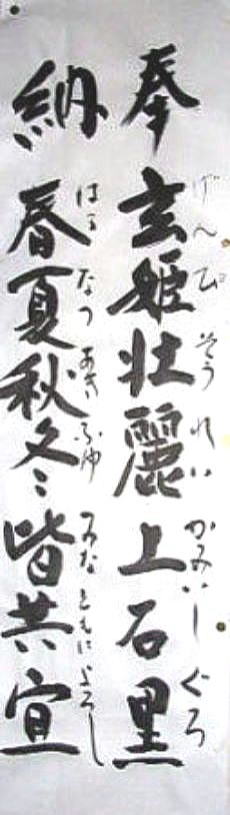 奉 玄姫壮麗上石黒
げんぴ そうれい かみいしぐろ
納 春夏秋冬皆共宜
はる なつ あき ふゆ みな ともに よろし